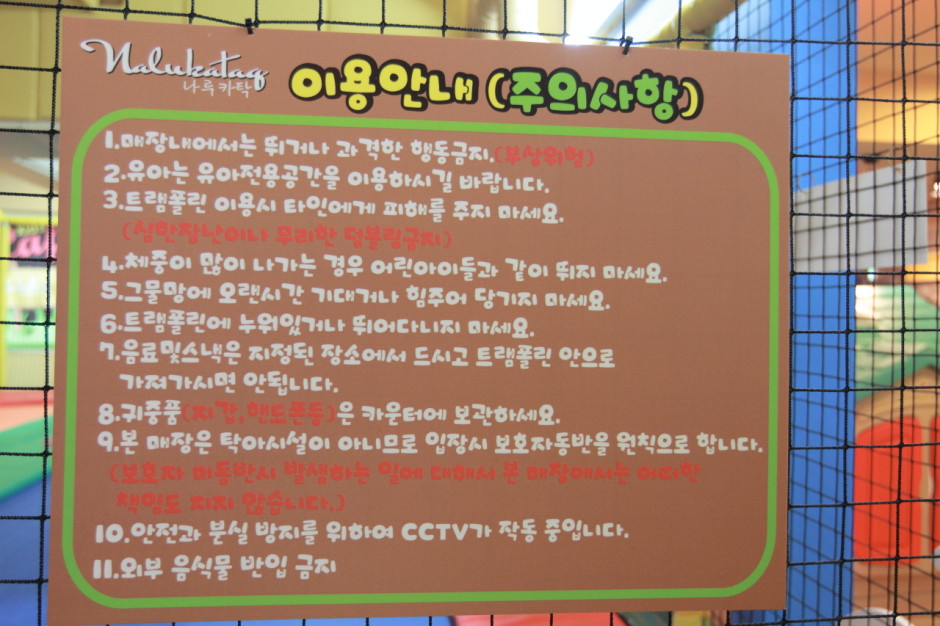 Nalukataq
나륵카탁
이용안내 (주의사항)
1.매장내에서는 뛰거나 과격한 행동금지.(부상위험)
2.유아는 유아전용공간을 이용하시길 바랍니다.
3.트램폴린 이용시 타인에게 피해를 주지 마세요.
(심한장난이나 무리한 덤블링금지)
4.체중이 많이 나가는 경우 어린아이들과 같이 뛰지 마세요.
5.그물망에 오랜시간 기대거나 힘주어 당기지 마세요.
6.트램폴린에 누워있거나 뛰어다니지 마세요.
7.음료및스낵은 지정된 장소에서 드시고 트램폴린 안으로
가져가시면 안됩니다.
8.귀중품(지갑,핸드폰등)은 카운터에 보관하세요.
9.본 매장은 탁아시설이 아니므로 입장시 보호자동반을 원칙으로 합니다.
(보호자 미동반시 발생하는 일에 대해서 본 매장에서는 어떠한
책임도 지지 않습니다.)
10.안전과 분실 방지를 위하여 CCTV가 작동 중입니다.
11.외부 음식물 반입 금지